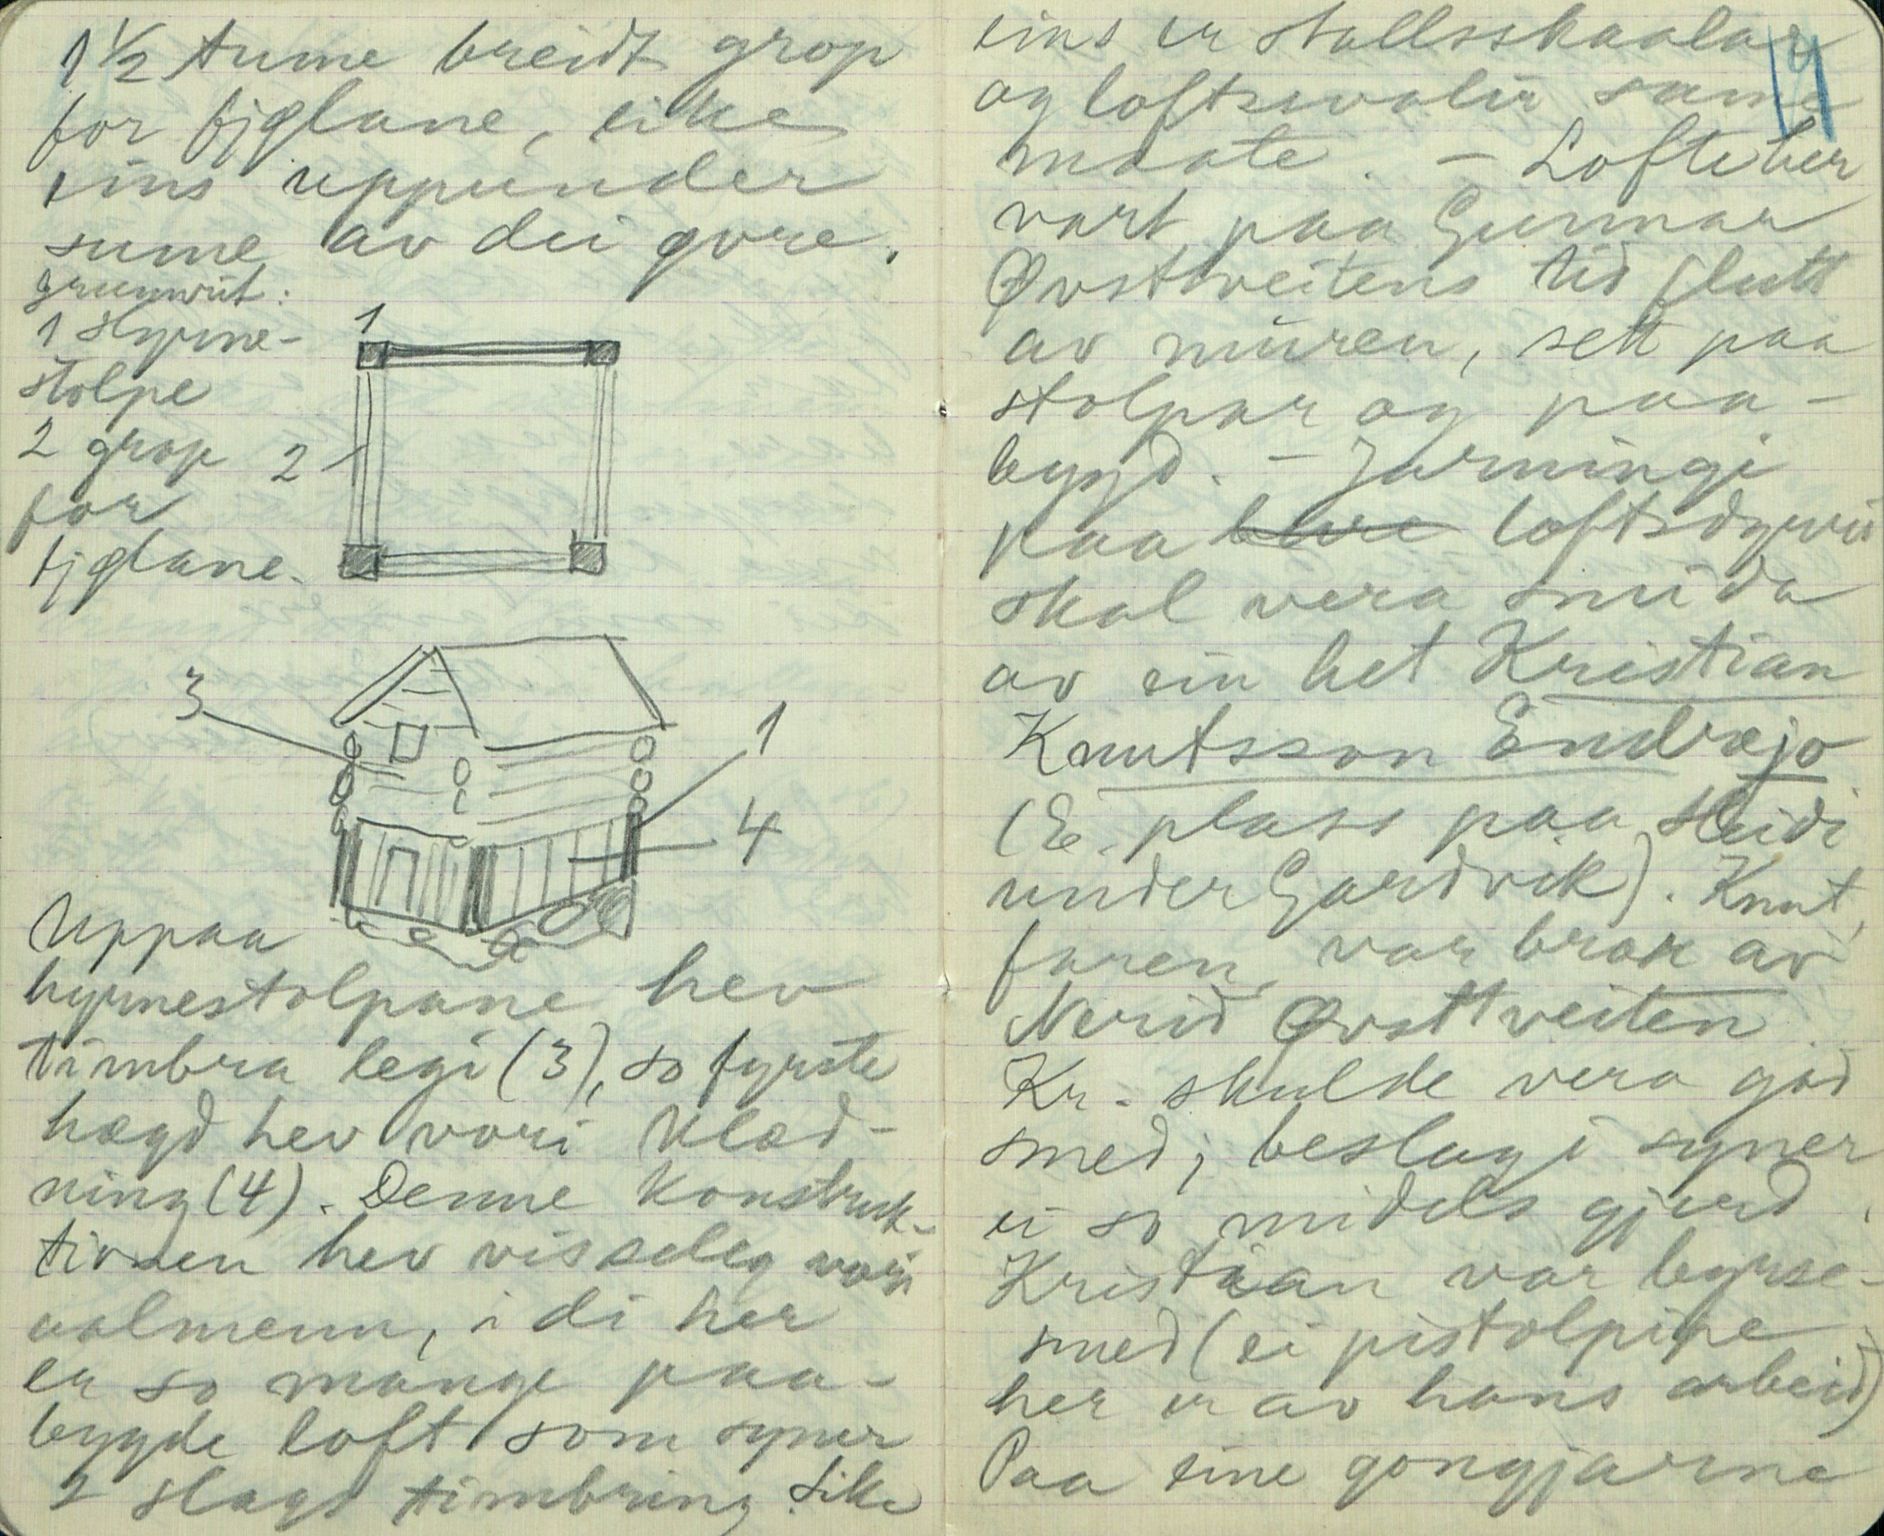 1½ tume breidt grop
for fjølane, like
eins uppunder
sume av dei øvre.
grunnrit:
1 Hyrne-
stolpe
2 grop
for
fjølane.
1
2
3
1
4
Uppaa
hyrnestolpane hev
timbra legi (3), so fyrste
høgd hev vori klæd-
ning (4). Denne konstruk-
tionen hev visseleg vori
aalmenn, i di her
er so mange paa-
bygde loft som syner
2 slags timbring. Like
eins er stallsskaalar
og loftsvalir same
maate. – Loftet her
vart paa Gunnar
Øvsttveitens tid flutt
av muren, sett paa
stolpar og paa-
bygd. – Jarningi
paa loftsdyrri
skal vera smida
av ein het Kristian
Knutsson Endrejo
(E. plass paa Heidi
under Gardvik). Knut,
faren, var bror av
Nerid Øvsttveiten.
Kr. skulde vera god
smed; beslagi syner
ei so midels gjerd.
Kristian var byrse-
smed (ei pistolpipe
her er av hans arbeid)
Paa eine gongjarne